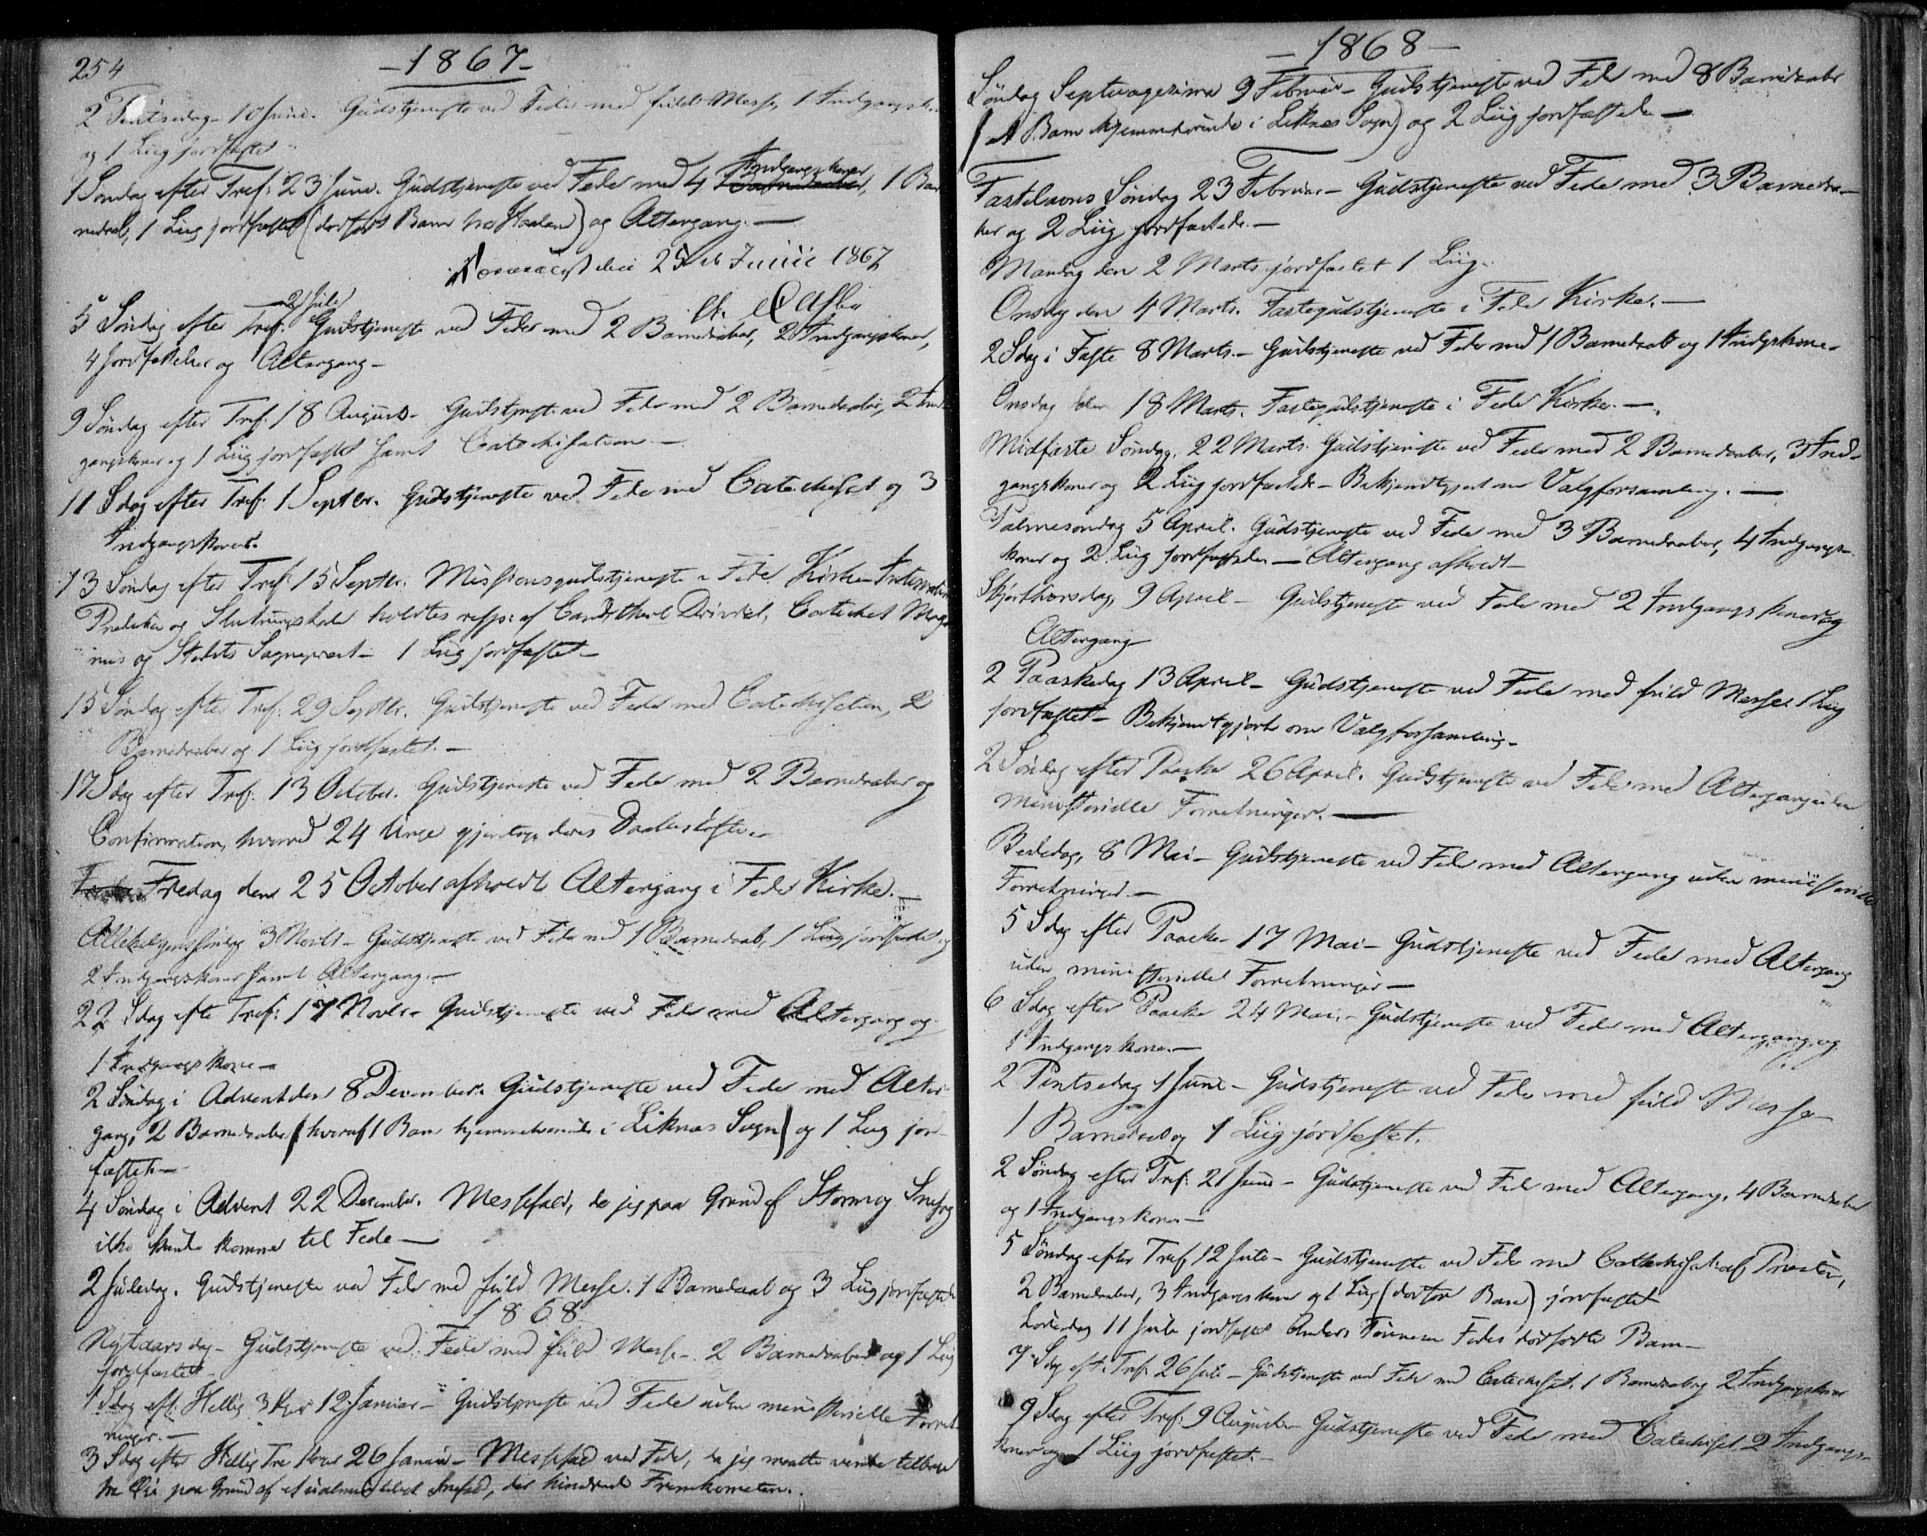 254
-1867-
2 Pintsedag 10 Juni. Gudstjeneste ved Fede med fuld Messe, 1 Indgangsk.
og 1 Liig jordfæstet
1 Søndag efter Tref: 23 Juni. Gudstjeneste ved Fede med 4 Indgangskoner, 1 Bar
nedaab, 1 Liig jordfæstet (dødfødt Barn fra Haaland) og Altergang. —
den 25de Junii 1867
5 Søndag efter Tref: 21 Juli Gudstjeneste ved Fede med 2 Barnedaaber, 2 Indgangskoner,
4 Jordfæstelser og Altergang -
9 Søndag efter Tref. 18 August. Gudstjeneste ved Fede med 2 Barnedaaber, 2 Ind-
gangskoner og 1 Liig jordfæstet samt Catechisation —
11 Sdag efter Tref. 1 Septbr. Gudstjeneste ved Fede med Catechisat og 3
Indgangskoner.
13 Søndag efter Tref: 15 Septbr. Missionsgudstjeneste i Fede Kirke
Prediken og Slutningstale holdtes resp: af Cand. theol. Catechet Mag
nus og Stedets Sognepræst - 1 Liig jordfæstet -
15 Søndag efter Tref. 29 Septbr. Gudstjeneste ved Fede med Catechisation, 2
Barnedaaber og 1 Liig jordfæstet. -
17 Sdag efter Tref. 13 October. Gudstjeneste ved Fede med 2 Barnedaaber og
Confirmation, hvorved 24 Unge gjentoge deres Daabsløfte. -
Fredag den 25 October afholdt Altergang i Fede Kirke. -
Allehelgenssøndag 3 Novbr - Gudstjeneste ved Fede med 1 Barnedaab, 1 Liig jordfæstet og
2 Indgangskoner samt Altergang. -
22 Sdag efter Tref: 17 Novbr - Gudstjeneste ved Fede med Altergang og
1 Indgangskone -
2 Søndag i Advent den 8 December. Gudstjeneste ved Fede med Alter
gang, 2 Barnedaaber (hvoraf 1 Barn hjemmehørende i Liknes Sogn) og 1 Liig jord
fæstet. -
4 Søndag i Advent 22 December. Messefald, da jeg paa Grund af Storm og Snefog
ikke kunde komme til Fede —
2 Juledag. Gudstjeneste ved Fede med fuld Messe. 1 Barnedaab og 3 Liig jordfæstede
1868
Nytaarsdag - Gudstjeneste ved Fede med fuld Messe - 2 Barnedaaber og 1 Liig
jordfæstet -
1 Sdag eft. Hellig 3 Kgr 12 Januar - Gudstjeneste ved Fede uden ministerielle Forret
ninger. -
3 Sdag efter Hellig Tre Konger 26 Januar - Messefald ved Fede, da jeg maatte vende tilbage
paa Grund af et ualmindeligt Snefald, der hindrede Fremkomsten. -
-1868-
Søndag Septuagesima 9 Februar - Gudstjeneste ved Fede med 8 Barnedaaber
(et Barn hjemmehørende i Liknes Sogn) og 2 Liig jordfæstede —
Fastelavns Søndag 23 Februar - Gudstjeneste ved Fede med 3 Barnedaa-
ber og 2 Liig jordfæstede. —
Mandag den 2 Marts jordfæstet 1 Liig.
Onsdag den 4 Marts. Fastegudstjeneste i Fede Kirke. —
2 Sdag i Faste 8 Marts. - Gudstjeneste ved Fede med 1 Barnedaab og 1 Indgskone -
Onsdag den 18 Marts. Fastegudstjeneste i Fede Kirke. —
Midfaste Søndag, 22 Marts. Gudstjeneste ved Fede med 2 Barnedaaber, 3 Ind-
gangskoner og 2 Liig jordfæstede - Bekjendtgjort om Valgforsamling. —
Palmesøndag 5 April. Gudstjeneste ved Fede med 3 Barnedaaber, 4 Indgangs-
koner og 2 Liig jordfæstede — Altergang afholdt -
Skjærthorsdag, 9 April - Gudstjeneste ved Fede med 2 Indgangskoner og
Altergang
2 Paaskedag 13 April - Gudstjeneste ved Fede med fuld Messe 1 Liig
jordfæstet - Bekjendtgjort om Valgforsamling -
2 Søndag efter Paaske 26 April. Gudstjeneste ved Fede med Altergang uden
ministerielle Forretninger. —
Bededag, 8 Mai - Gudstjeneste ved Fede med Altergang uden ministerielle
Forretninger. —
5 Sdag efter Paaske - 17 Mai - Gudstjeneste ved Fede med Altergang
uden ministerielle Forretninger —
6 Sdag efter Paaske 24 Mai. - Gudstjeneste ved Fede med Altergang og
1 Indgangskone. —
2 Pintsedag 1 Juni - Gudstjeneste ved Fede med fuld Messe
1 Barnedaab og 1 Liig jordfæstet.
2 Søndag efter Tref: 21 Juni - Gudstjeneste ved Fede med Altergang, 4 Barnedaaber
og 1 Indgangskone —
5 Søndag efter Tref 12 Juli - Gudstjeneste ved Fede med Catechisat: af Præsten,
2 Barnedaaber, 3 Indgangskoner og 1 Liig (dødfødt Barn) jordfæstet
Løverdag 11 Juli jordfæstet Anders Tønnesen Fedes dødfødte Barn -
7 Sdag eft. Tref. 26 Juli - Gudstjeneste ved Fede med Catechisat. 1 Barnedaab og 2 Indgangskoner
9 Sdag efter Tref: 9 August - Gudstjeneste ved Fede med Catechisat. 2 Indgangs-
koner og 1 Liig jordfæstet. -